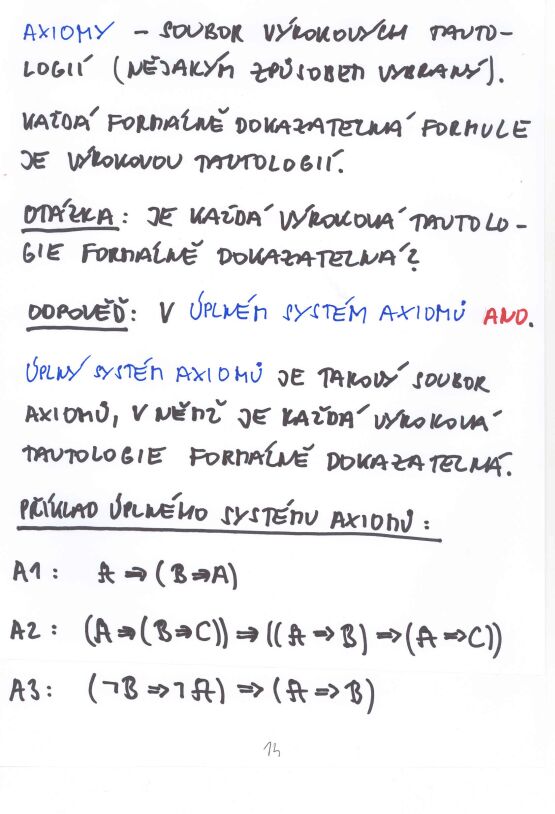 AXIOMY – SOUBOR VÝROKOVÝCH TAUTO-
LOGIÍ (NĚJAKÝM ZPŮSOBEM VYBRANÝ).
KAŽDÁ FORMÁLNĚ DOKAZATELNÁ FORMULE
JE VÝROKOVOU TAUTOLOGIÍ.
OTÁZKA: JE KAŽDÁ VÝROKOVÁ TAUTOLO-
GIE FORMÁLNĚ DOKAZATELNÁ?
ODPOVĚĎ: V ÚPLNÉM SYSTÉM AXIOMŮ ANO.
ÚPLNÝ SYSTÉM AXIOMŮ JE TAKOVÝ SOUBOR
AXIOMŮ, V NĚMŽ JE KAŽDÁ VÝROKOVÁ
TAUTOLOGIE FORMÁLNĚ DOKAZATELNÁ.
PŘÍKLAD ÚPLNÉHO SYSTÉMU AXIOMŮ:
A1: A ⇒ (B ⇒ A)
A2: (A ⇒ (B ⇒ C)) ⇒ ((A ⇒ B) ⇒ (A ⇒ C))
A3: (¬B ⇒ ¬A) ⇒ (A ⇒ B)
14